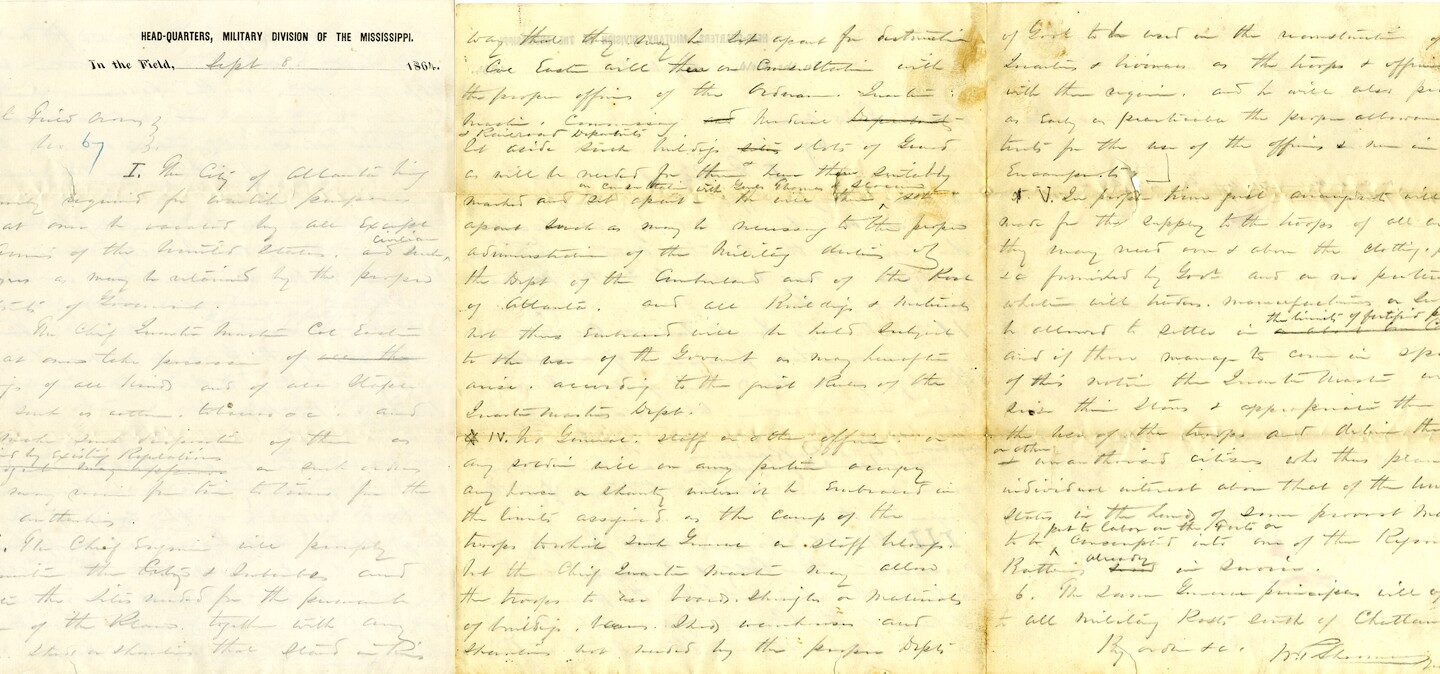 HEAD-QUARTERS, MILITARY DIVISION OF THE MISSISSIPPI.
In the Field, Sept 8 1864.
Field Orders
No 67
I. The City of Atlanta being
required for warlike purposes
at once be vacated by all Except
Armies of the United States. and such
civilian
as may be retained by the proper
of Government.
The Chief Quarter Master Col Easton
at once take possession of
of all kinds and of all Staple
such as cotton. tobacco &c. and
such disposition of them as
by existing Regulations
or such orders
may receive from time to time from the
authorities.
The Chief Engineer will promptly
the City & Suburbs and
the sites needed for the permanent
of the Place. together with any
that stand in this
way that they may be set apart for destruction
Col Easton will then on Consultation with
the proper officers of the Ordnance. Quarter
Master. Commissary and Medical Departments
& Railroad Departments
set aside such buildings sites & lots of Ground
as will be needed for them & have them suitably
on consultation with Genls Thomas &
marked and set apart. He will then set
apart such as may be necessary to the proper
administration of the Military duties of
the Dept of the Cumberland and of the Post
of Atlanta. and all Buildings & materials
not thus Embraced will be held subject
to the use of the Govmt as may hereafter
arise. according to the just Rules of the
Quarter Masters Dept.
IV. No General. staff or other officer or
any soldier will on any pretense occupy
any house or shanty unless it be Embraced in
the limits assigned as the camp of the
troops to which such General or staff belongs.
But the Chief Quarter Master may allow
the troops to use boards. shingles or materials
of buildings. barns. sheds. warehouses and
shanties not needed by the proper Depts
of Govt to be used in the reconstruction of
Quarters & as the troops & officers
with them require. and he will also
as early as practicable the proper allowance
tents for the use of the officers & men in
Encampments
V. In proper time just arrangements will
made for the supply to the troops of all
they may need over & above the clothing.
&c furnished by Govt and on no pretense
whatever will traders. manufacturers or
be allowed to settle in the limits of fortified
and if these manage to come in spite
of this notice the Quarter Master
seize their stores & appropriate them
the use of the troops and deliver the
or other
unauthorised citizens who thus place
individual interest above that of the
States in the hands of some provost
put to labor on the Forts or
to be conscripted into one of the Regiments
Batteries already in service.
6. The same General principles will
to all Military Posts south of Chattanooga
By order &c. W. T. Sherman